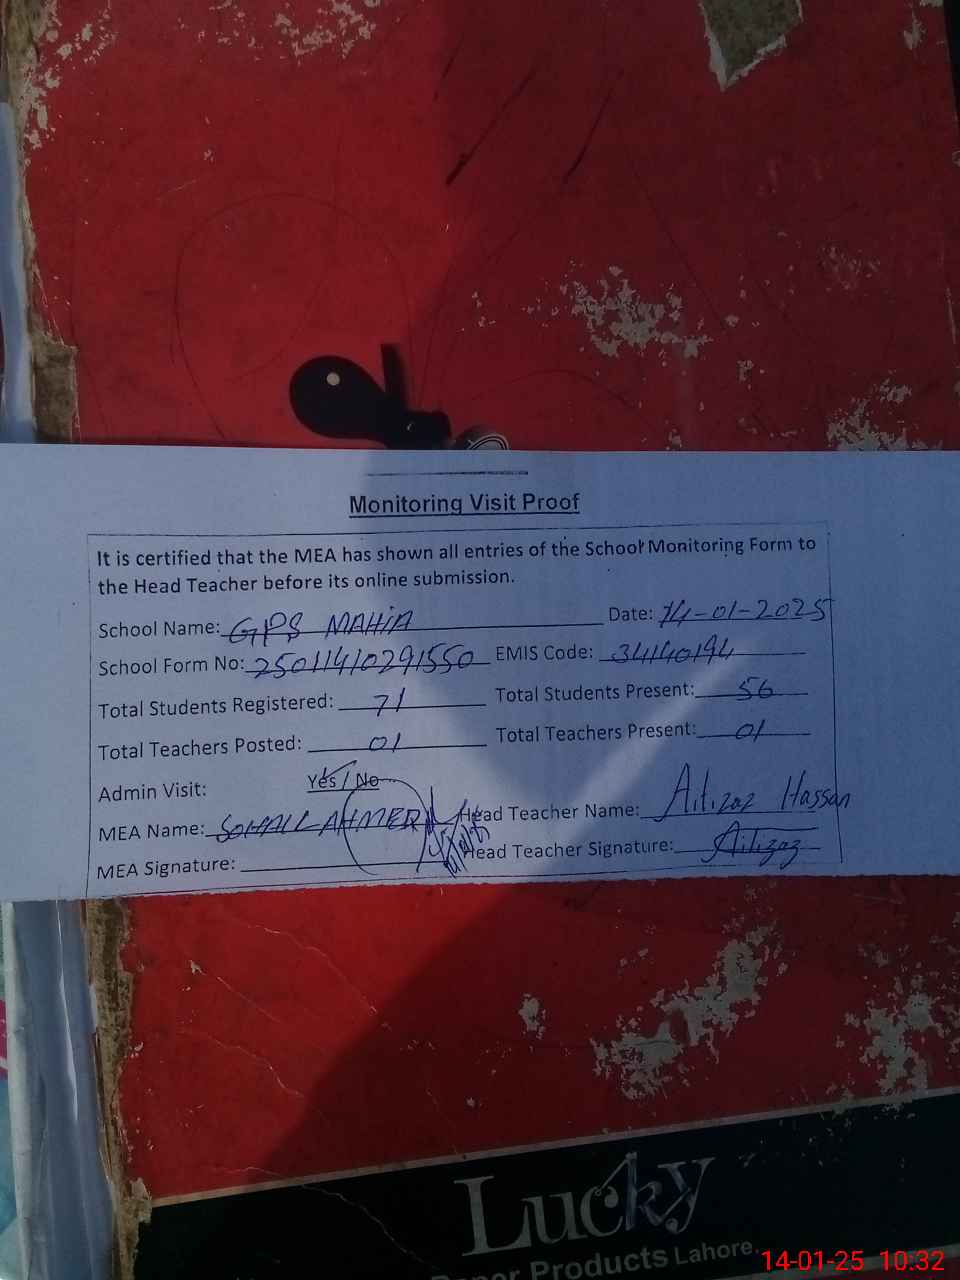 Monitoring Visit Proof
It is certified that the MEA has shown all entries of the School Monitoring Form to
the Head Teacher before its online submission.
School Name: GPS MAHIA Date: 14-01-2025
School Form No: 25011410291550 EMIS Code: 34140194
Total Students Registered: 71 Total Students Present: 56
Total Teachers Posted: 01 Total Teachers Present: 01
Admin Visit: Yes / No
MEA Name: SOHAIL AHMED Head Teacher Name: Aitizaz Hassan
MEA Signature: Head Teacher Signature: Aitizaz
Lucky
Paper Products Lahore.
14-01-25 10:32